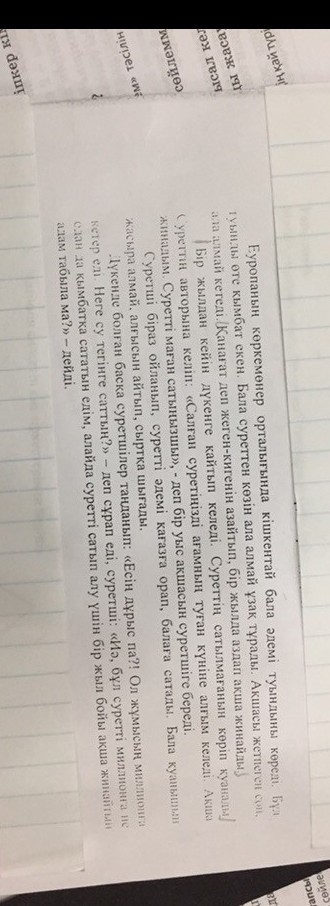 Еуропаның көркемөнер орталығында кішкентай бала әдемі туындыны көреді. Бұл
туынды өте қымбат екен. Бала суреттен көзін ала алмай ұзақ тұрады. Ақшасы жетпеген соң,
ала алмай кетеді. Қанағат деп жеген-кигенін азайтып, бір жылда аздап ақша жинайды.
Бір жылдан кейін дүкенге қайтып келеді. Суреттің сатылмағанын көріп қуанады.
Суреттің авторына келіп: «Салған суретіңізді ағамның туған күніне алғым келеді. Ақша
жинадым. Суретті маған сатыңызшы», - деп бір уыс ақшасын суретшіге береді.
Суретші біраз ойланып, суретті әдемі қағазға орап, балаға сатады. Бала қуанышын
жасыра алмай, алғысын айтып, сыртқа шығады.
Дүкенде болған басқа суретшілер таңданып: «Есің дұрыс па?! Ол жұмысың миллионға
кетер еді. Неге су тегінге саттың?» – деп сұрап еді, суретші: «Иә, бұл суретті миллионға не
одан да қымбатқа сататын едім, алайда суретті сатып алу үшін бір жыл бойы ақша жинайтын
адам табыла ма?» – дейді.
ің қай түрі
ды жаса
ысал ке
сөйлемм
ем» тәсілін
?
іпкер кі